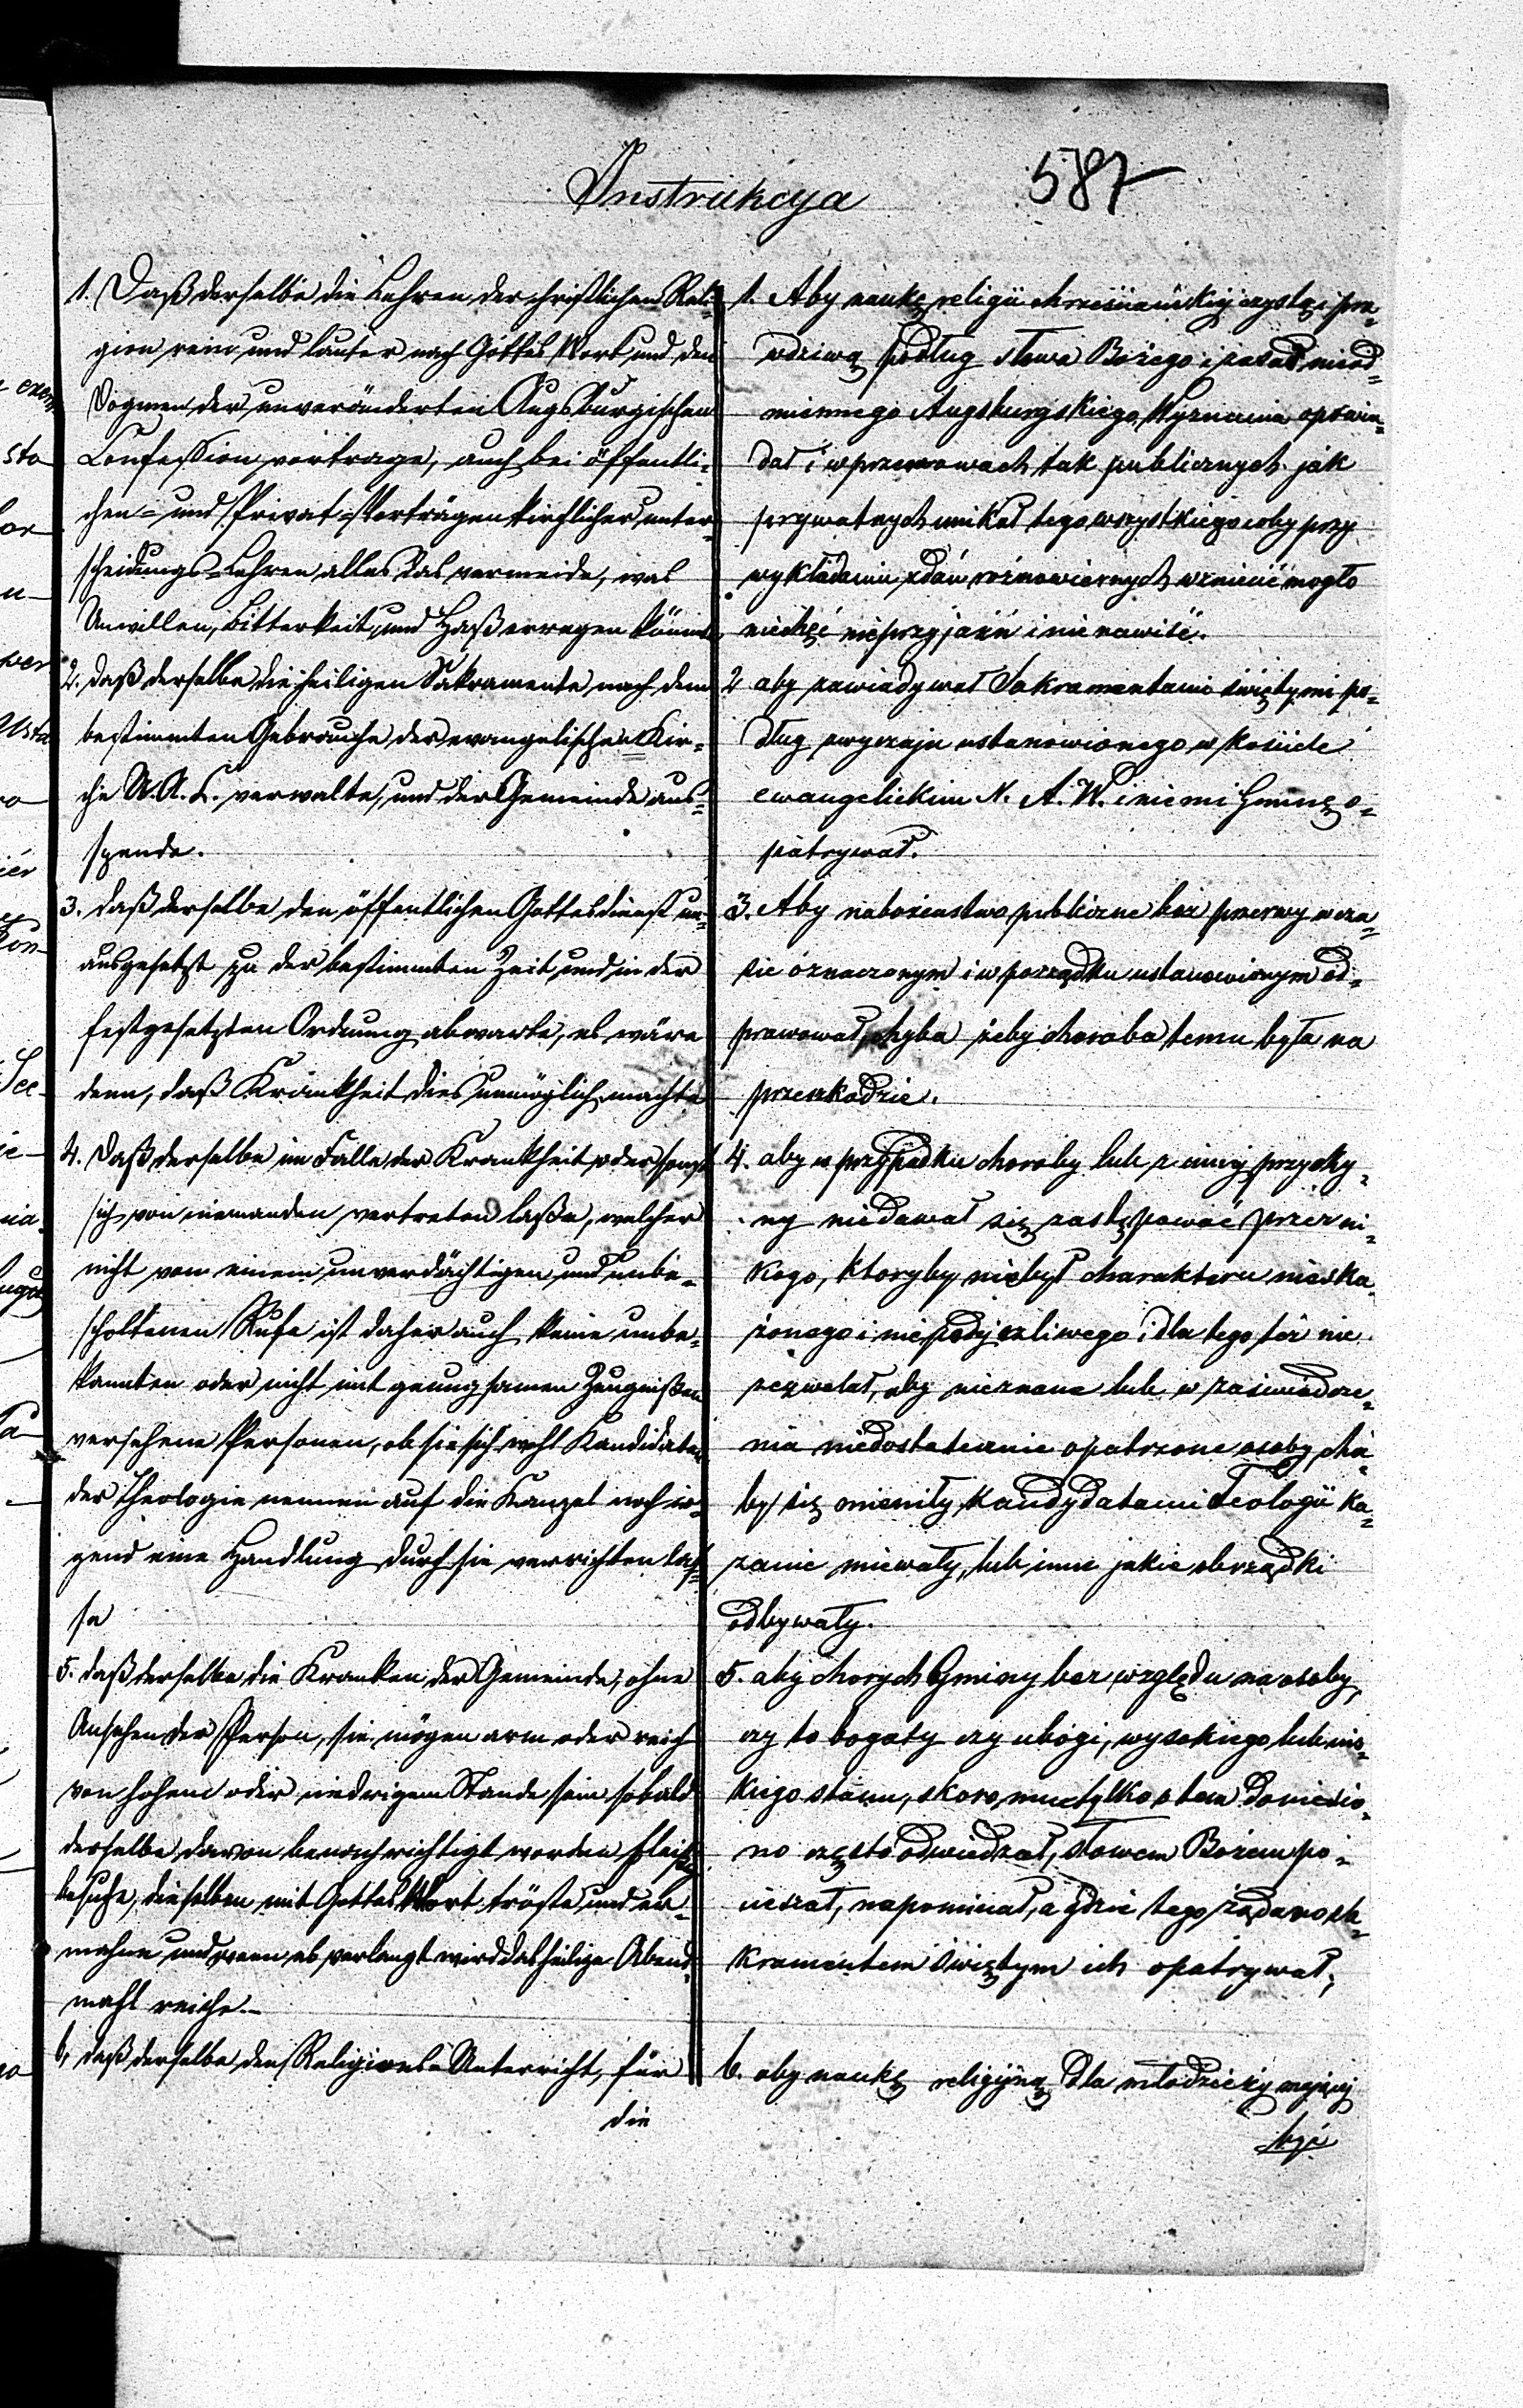 Instrukcya
587
1. Daß derselbe die Lehren der christlichen Reli-
gion rein und lauter nach Gottes Wort und den
Dogmen der unveränderten Augsburgischen
Confession vortrage, auch bei öffentli-
chen- und Privat-Vorträgen kirchlicher unter-
scheidungs-Lehren alles das vermeide, was
Unwillen, Bitterkeit, und Haß erregen könnte
2. daß derselbe die heiligen Sakramente nach dem
bestimmten Gebrauche der evangelischen Kir-
che U. A. C. verwalte, und der Gemeinde aus-
spende.
3. daß derselbe den öffentlichen Gottesdienst un-
ausgesetzt zu der bestimmten Zeit und in der
festgesetzten Ordnung abwarte, es wäre
denn, daß Krankheit dies unmöglich machte
4. daß derselbe im Falle der Krankheit oder sonst
sich von niemanden vertreten laße, welcher
nicht von einem unverdächtigen und unbe-
scholtenen Rufe ist daher auch keine unbe-
kannten oder nicht mit genugsamen Zeugnißen
versehene Personen, ob sie sich wohl Kandidaten
der Theologie nennen auf die Kanzel noch ir-
gend eine Handlung durch sie verrichten las-
se
5. daß derselbe die Kranken der Gemeinde, ohne
Ansehen der Person, sie mögen arm oder reich
von hohem oder niedrigem Stande sein sobald
derselbe davon benachrichtigt worden fleißig
besuche, dieselben mit Gottes Wort tröste und er-
mahne und wenn es verlangt wird das heilige Abend-
mahl reiche.-
6, daß derselbe den Religions-Unterricht, für
die
1. Aby naukę religii chrześciańskiéj czystą i pra-
wdziwą podług słowa Bożego i zasad nieod-
miennego Augsburgskiego Wyznania opowia-
dał i w przemowach tak publicznych ják
prywatnych unikał tego wszystkiego coby przy
wykładaniu zdań róznowiernych wzniecić mogło
niechęć nieprzyjaźń i nienawiść.
2 aby zawiadywał Sakramentami świętymi po-
dług zwyczaju ustanowionego w kościele
ewangelickim N. A. W. i niemi Gminę o-
patrywał.
3. Aby nabożenstwo publiczne béz przerwy w cza-
sie oznaczonym i w porządku ustanowionym od-
prawował, chyba żeby choroba temu była na
przeszkodzie.
4. aby w przypadku choroby lub z innéj przyczy-
ny niedawał się zastępować przez ni-
kogo, ktoryby niebył charakteru nieska-
żonego i niepodejrzliwego i dla tego téż nie
zezwalał, aby nieznane lub w zaświadcze-
nia niedostatecznie opatrzone osoby, cho-
by się mieniły Kandydatami Teologii ka-
zanie miewały, lub inne jakie obrządki
odbywały.
5. aby chorych Gminy bez względu na osoby,
czy to bogaty czy ubogi, wysokiego lub niz-
kiego stanu, skoro mu tylko o tem doniesio-
no często odwiedzał, słowem Bożem po-
cieszał, napominał, a gdzie tego żądano sa-
kramentem świętym ich opatrywał;
6. aby naukę religijną dla młodzieży mającéj
być